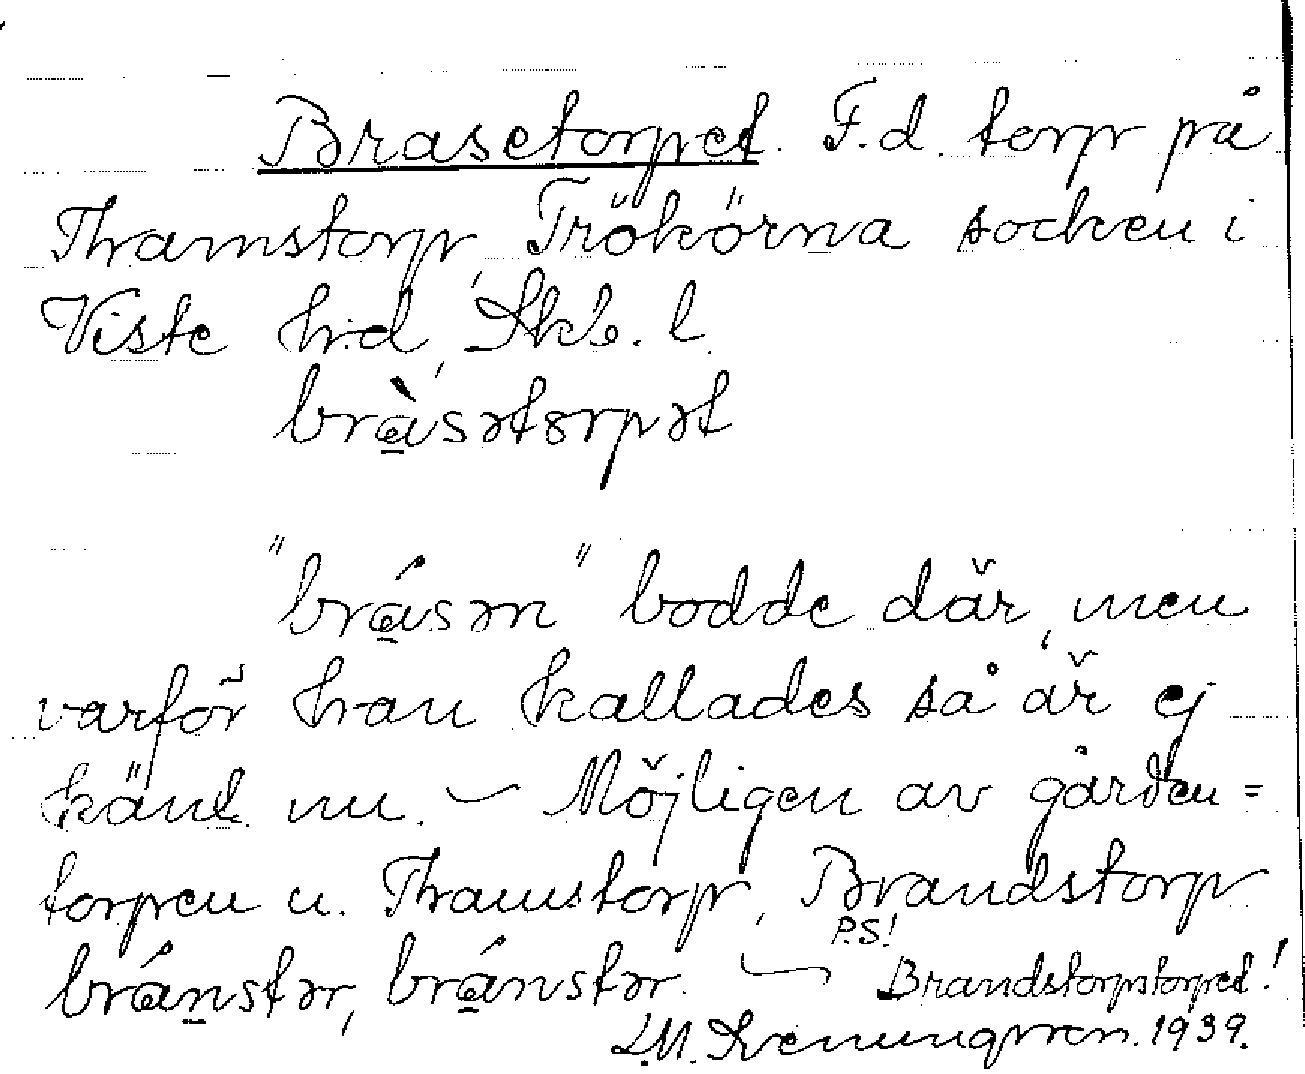 Brasetorpet. F.d. torp på
Thamstorp, Trökörna socken i
Viste h:d, Skb. l.
bràsətorpət
"brásən" bodde där, men
varför han kallades så är ej
känt nu. — Möjligen av gården =
torpen u. Thamstorp, Brandstorp
bránstər, bránstər. — P.S! Brandstorpstorpet!
1939.